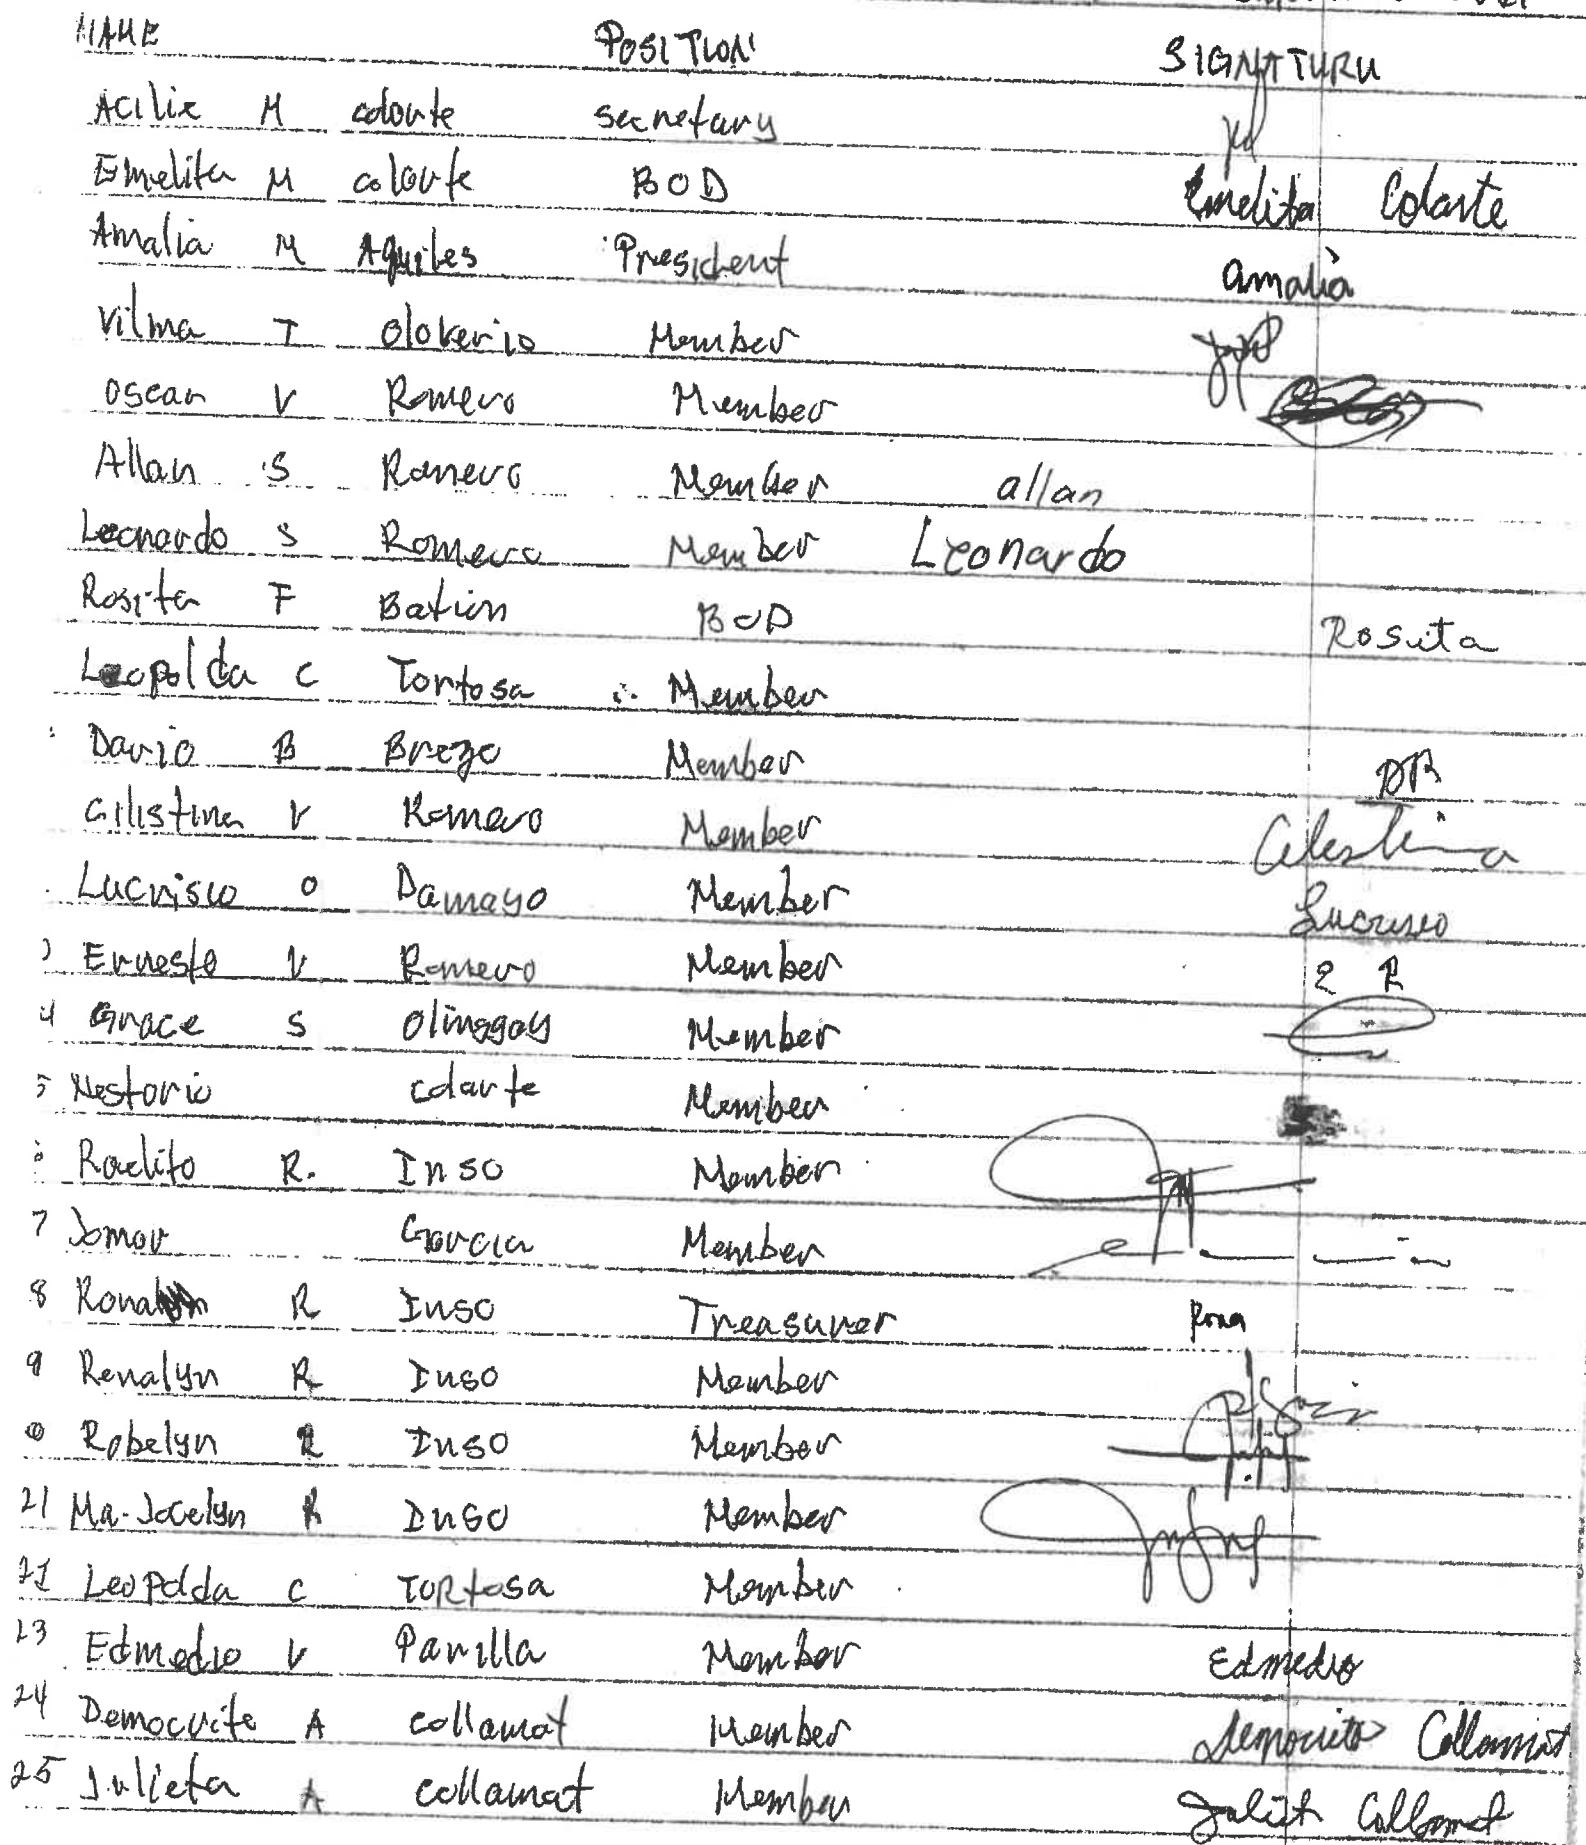 NAME POSITION SIGNATURU
Acilie M colarte secretary
Emelita M colarte BOD Emelita Colarte
Amalia M Aquiles President amalia
Vilma T olokerio Member
oscar V Romero Member
Allan S Romero Member allan
Leonardo S Romero Member Leonardo
Rosita F Bation BOD Rosita
Leopolda C Tortosa Member
Dario B Brezo Member DB
Cilistina V Romero Member Celestina
Lucrisio O Damayo Member Lucresio
Ernesto V Romero Member E R
4 Grace S olinggay Member
5 Nestorio colarte Member
Rodito R. Inso Member
7 Jomar Garcia Member
8 R Inso Treasurer Rona
9 Renalyn R Inso Member
0 Robelyn R Inso Member
21 Ma. Jocelyn R Inso Member
22 Leopolda C Tortosa Member
23 Edmedio V Parilla Member Edmedio
24 Democrito A collamat Member Democrito Collamat
25 Julieta A collamat Member Juliet Collamat